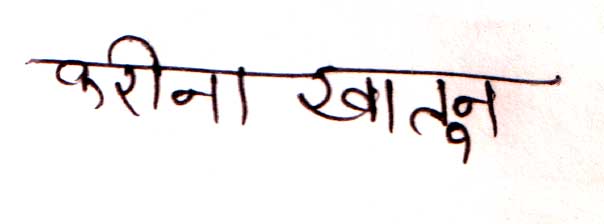 करीना खातुन